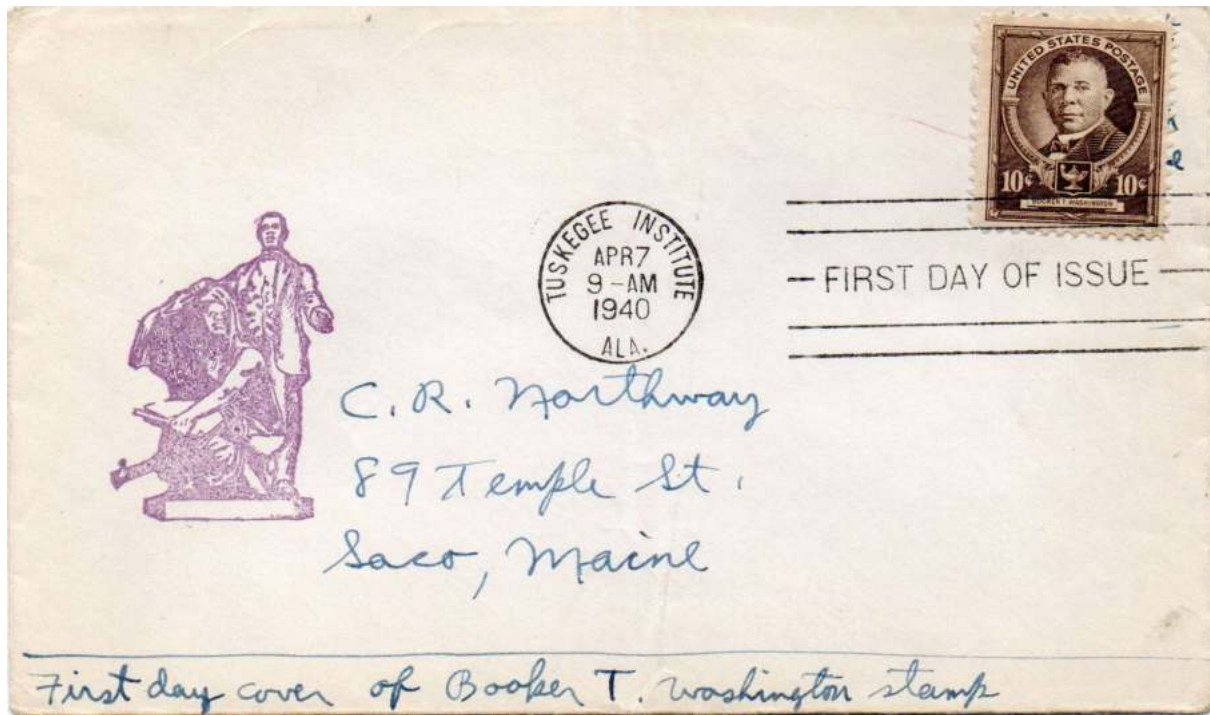 UNITED STATES POSTAGE
10¢ 10¢
BOOKER T. WASHINGTON
TUSKEGEE INSTITUTE
APR 7
9-AM
1940
ALA.
FIRST DAY OF ISSUE
C. R. Northway
89 Temple St.
Saco, Maine
First day cover of Booker T. Washington stamp